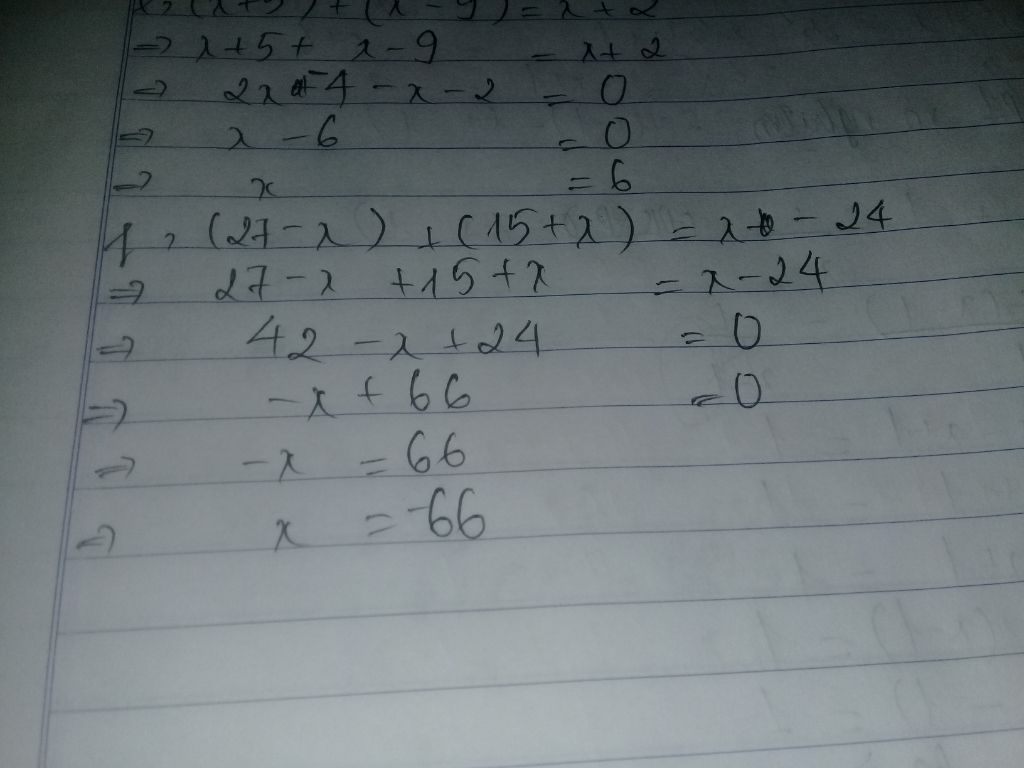 (x+5) + (x-9) = x + 2
=> x+5+ x-9 = x+ 2
=> 2x -4 -x -2 = 0
=> x -6 = 0
=> x = 6
f, (27-x) + (15+x) = x - 24
=> 27-x +15+x = x-24
=> 42 -x +24 = 0
=> -x + 66 = 0
=> -x = 66
=> x = -66